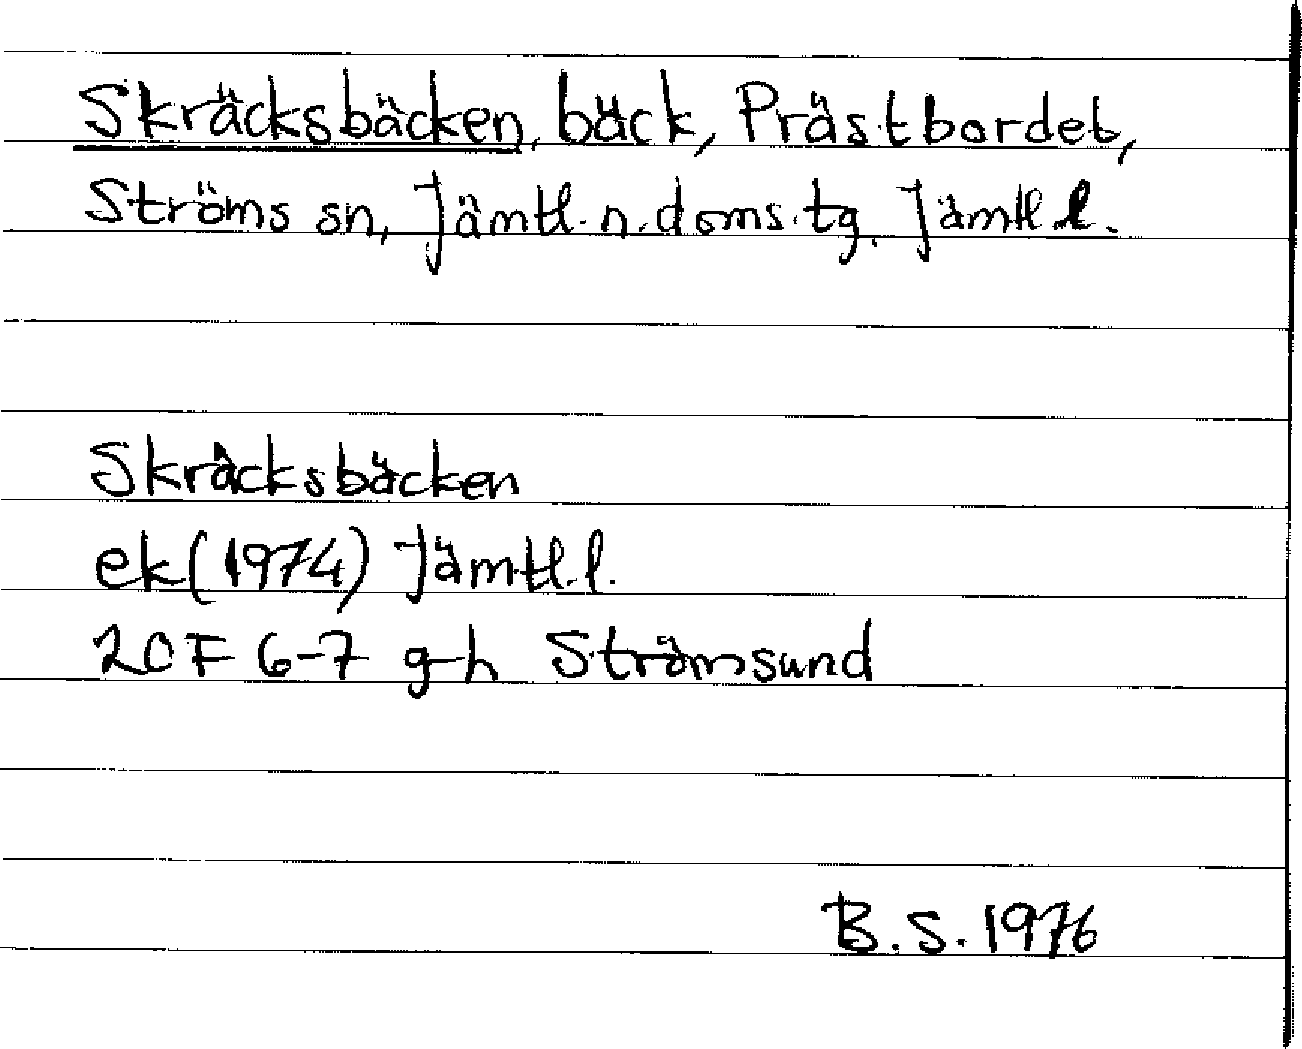 Skräcksbäcken, bäck, Prästbordet,
Ströms sn, Jämtl. n. doms. tg, Jämtl. l.
Skräcksbäcken
ek (1974) Jämtl. l.
20F 6-7 g-h Strömsund
B.S. 1976